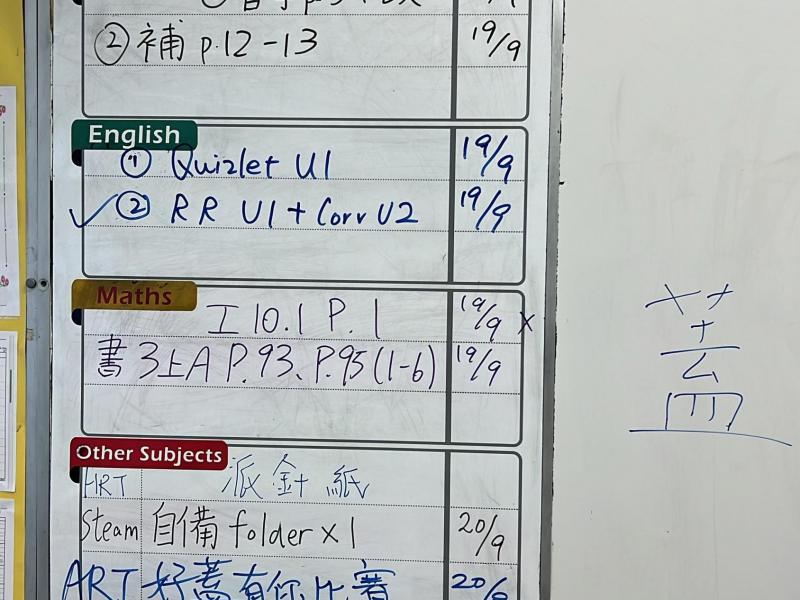 ② 補 p.12-13 19/9
English
① Quizlet U1 19/9
✓ ② RR U1 + Corr U2 19/9
Maths
工 10.1 P.1 19/9 x
書 3上A P.93、P.95 (1-6) 19/9
Other Subjects
HRT 派針紙
Steam 自備 folder x 1 20/9
ART 好蓋有你比賽 20/9
蓋